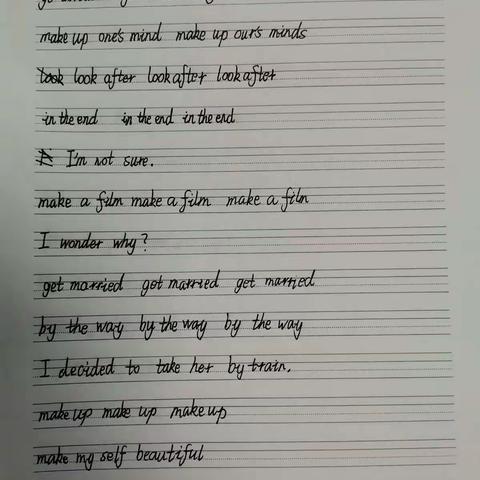 make up one's mind make up our's minds
look look after look after look after
in the end in the end in the end
I'm not sure.
make a film make a film make a film
I wonder why?
get married get married get married
by the way by the way by the way
I decided to take her by train.
make up make up make up
make my self beautiful